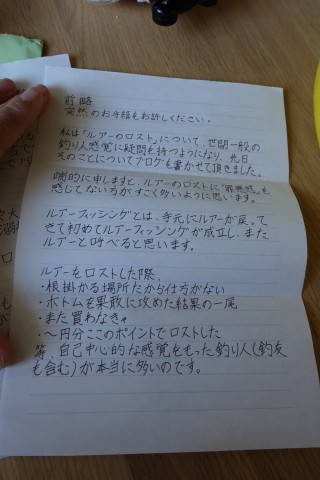 前略
突然のお手紙をお許しください。
私は「ルアーのロスト」について、世間一般の
釣り人感覚に疑問を持つようになり、先日
そのことについてブログを書かせて頂きました。
端的に申しますと、ルアーのロストに"罪悪感"を
感じてない方がすごく多いように思います。
ルアーフィッシングとは、手元にルアーが戻って
きて初めてルアーフィッシングが成立し、また
ルアーと呼べると思います。
ルアーをロストした際、
・根掛かる場所だから仕方がない
・ボトムを果敢に攻めた結果の一尾
・また買わなきゃ
・〜円分ここのポイントでロストした
等、自己中心的な感覚をもった釣り人(釣友
も含む)が本当に多いのです。